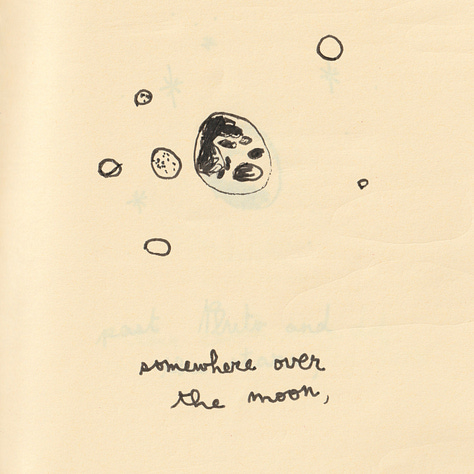 and
somewhere over
the moon,